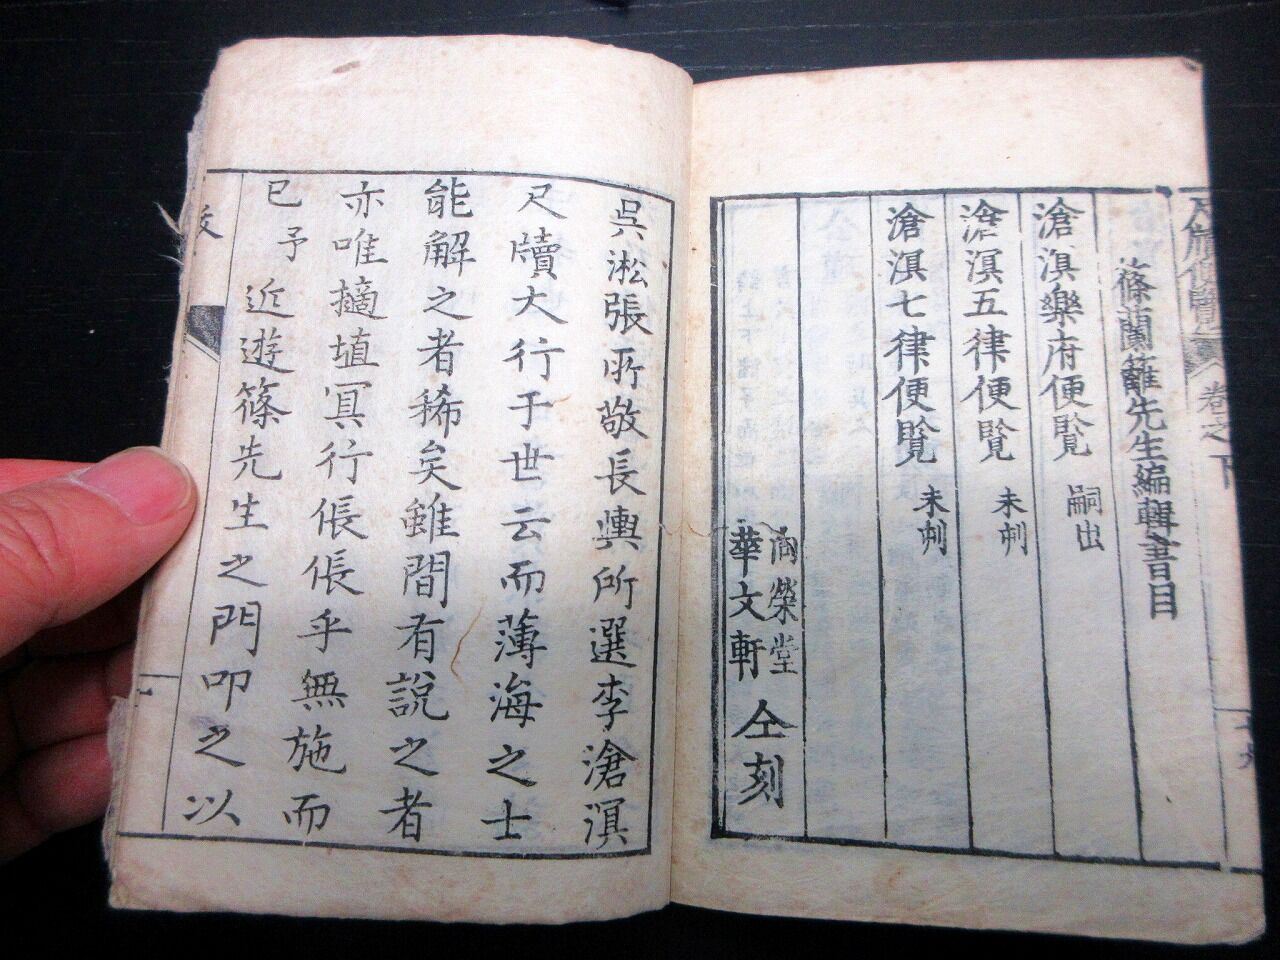 尺牘便覽 卷之下
篠蘭籬先生編輯書目
滄溟樂府便覧 嗣出
滄溟五律便覧 未刻
滄溟七律便覧 未刻
榮堂
華文軒
仝刻
吳淞張所敬長輿所選李滄溟
尺牘大行于世云而薄海之士
能解之者稀矣雖間有說之者
亦唯摘埴冥行倀倀乎無施而
已予近遊篠先生之門叩之以
跋